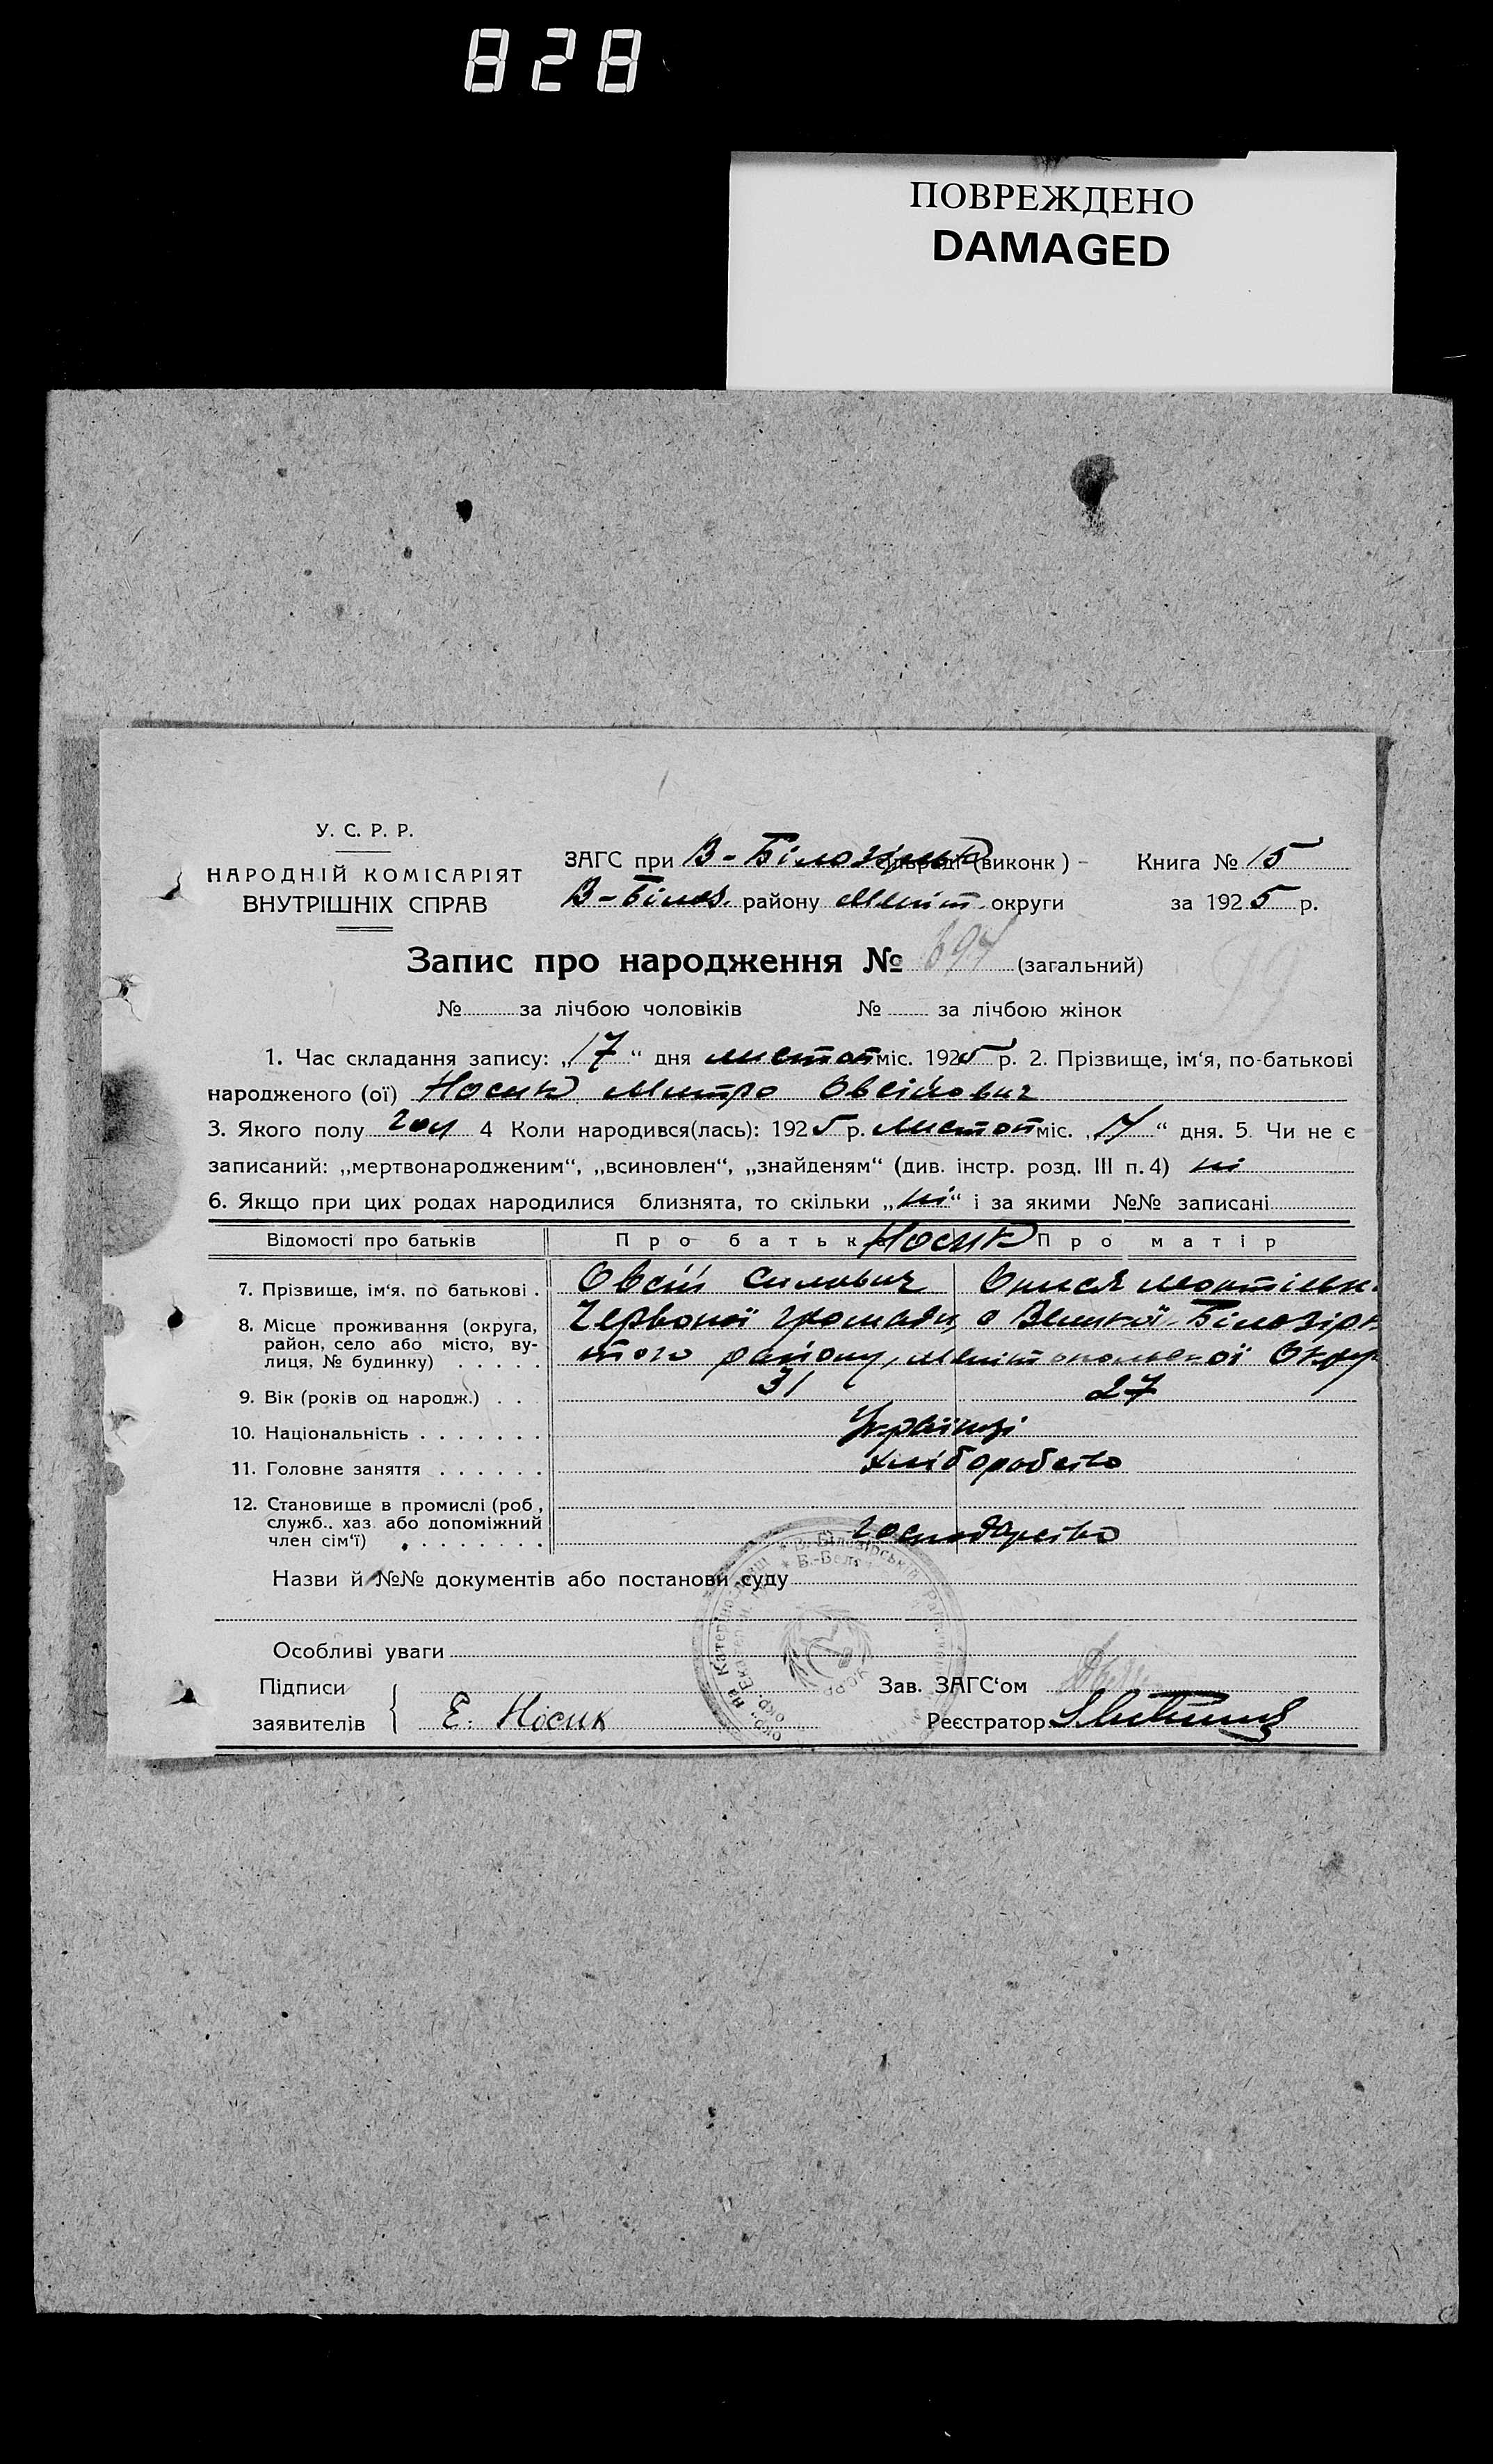 828
ПОВРЕЖДЕНО
DAMAGED
У. С. Р. Р.
НАРОДНІЙ КОМІСАРІЯТ
ВНУТРІШНІХ СПРАВ
ЗАГС при В-Білозірськ сільраді (виконк) Книга № 15
В-Білоз. району Меліт. округи за 1925 р.
Запис про народження № 694 (загальний)
№ за лічбою чоловіків № за лічбою жінок
1. Час складання запису: „17“ дня листоп міс. 1925 р. 2. Прізвище, ім‘я, по-батькові
народженого (ої) Носик Митро Овсійович
3. Якого полу чол 4 Коли народився(лась): 1925 р. Листоп міс. „17“ дня. 5. Чи не є
записаний: „мертвонародженим“, „всиновлен“, „знайденям“ (див. інстр. розд. III п. 4) ні
6. Якщо при цих родах народилися близнята, то скільки „ні“ і за якими №№ записані
Відомості про батьків Про батьк Носик Про матір
7. Прізвище, ім‘я, по батькові . Овсій Силович
8. Місце проживання (округа, район, село або місто, вулиця, № будинку) Червоної громади, Великої-Білозірк
того району, Мелітопольської Окру
9. Вік (років од народж.) . . 31 27
10. Національність . . . . . . . Українці
11. Головне заняття . . . . . . хлібороботво
12. Становище в промислі (роб., служб.. хаз. або допоміжний член сім‘ї) . . . . . . . . господарство
Назви й №№ документів або постанови суду
Особливі уваги
Підписи Зав. ЗАГС‘ом
заявителів Е. Носик Реєстратор